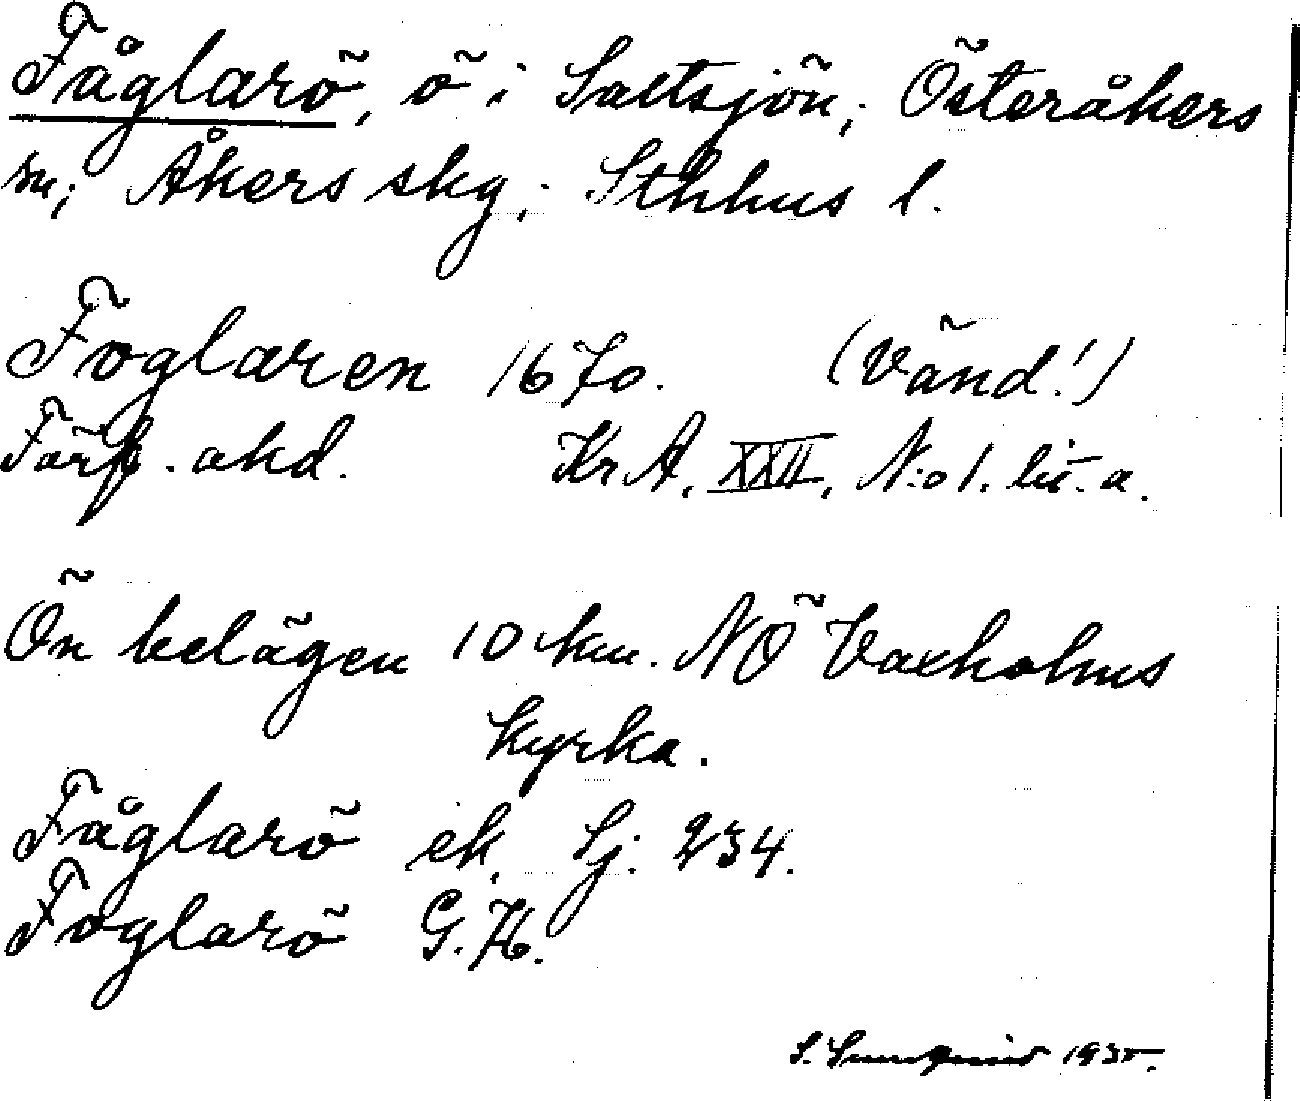 Fåglarö, ö i Saltsjön; Österåkers
sn; Åkers skg; Sthlms l.
Foglaren 1670. (Vänd!)
Förf. akd. KrA, XXII, N:o 1. lit. a.
Ön belägen 10 km. NÖ Vaxholms
kyrka.
Fåglarö ek. Sj. 234.
Foglarö G.K.
S. 1935.